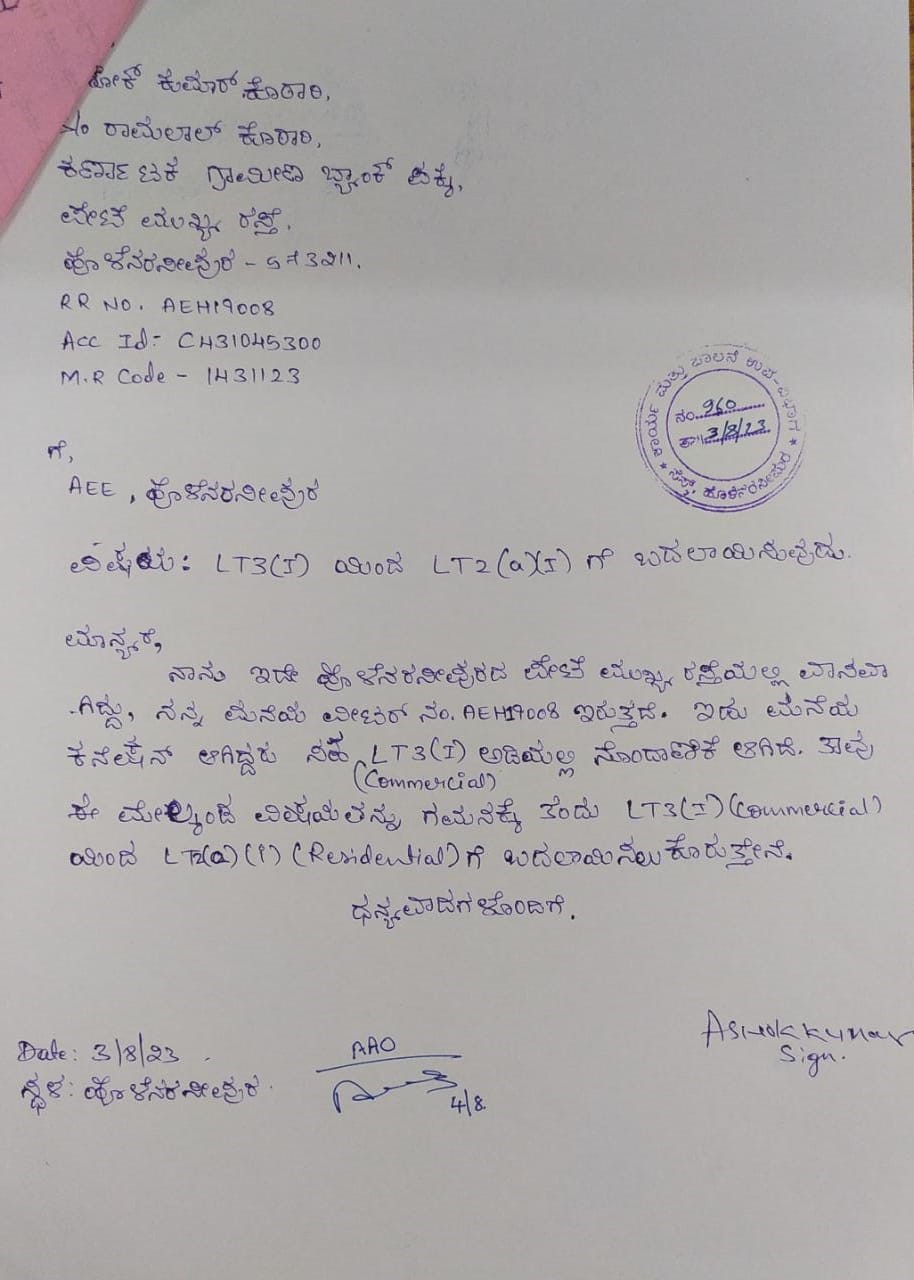 ಕುಮಾರ್ ಕೊಠಾರಿ,
S/o ರಾಮಲಾಲ್ ಕೊಠಾರಿ,
ಕರ್ನಾಟಕ ಗ್ರಾಮೀಣ ಬ್ಯಾಂಕ್ ಪಕ್ಕ,
ಪೇಟೆ ಮುಖ್ಯ ರಸ್ತೆ.
ಹೊಳೆನರಸೀಪುರ - 573211.
RR NO. AEH19008
Acc Id:- CH31045300
M.R Code - 1431123
ಕಾರ್ಯ ಮತ್ತು ಪಾಲನೆ ಉಪ-ವಿಭಾಗ
ನಂ. 960
ತಾ॥ 3/8/23
ಸೆಸ್ಕ್, ಹೊಳೆನರಸೀಪುರ
ಗೆ,
AEE, ಹೊಳೆನರಸೀಪುರ
ವಿಷಯ: LT3(I) ಯಿಂದ LT2(a)(I) ಗೆ ಬದಲಾಯಿಸುವುದು.
ಮಾನ್ಯರೆ,
ನಾನು ಇದೇ ಹೊಳೆನರಸೀಪುರದ ಪೇಟೆ ಮುಖ್ಯ ರಸ್ತೆಯಲ್ಲಿ ವಾಸವಾ
-ಗಿದ್ದು, ನನ್ನ ಮನೆಯ ಮೀಟರ್ ನಂ. AEH19008 ಇರುತ್ತದೆ. ಇದು ಮನೆಯ
ಕನೆಷನ್ ಆಗಿದ್ದರು ಸಹ LT3(I) ಅಡಿಯಲ್ಲಿ ನೊಂದಾಣಿಕೆ ಆಗಿದೆ. ತಾವು
(Commercial)
ಈ ಮೇಲ್ಕಂಡ ವಿಷಯವನ್ನು ಗಮನಕ್ಕೆ ತೆಂದು LT3(I) (Commercial)
ಯಿಂದ LT2(a)(1) (Residential) ಗೆ ಬದಲಾಯಿಸಲು ಕೊರುತ್ತೇನೆ.
ಧನ್ಯವಾದಗಳೊಂದಿಗೆ.
Ashokkumar
Sign.
Date: 3/8/23.
ಸ್ಥಳ: ಹೊಳೆನರಸೀಪುರ.
AAO
4/8